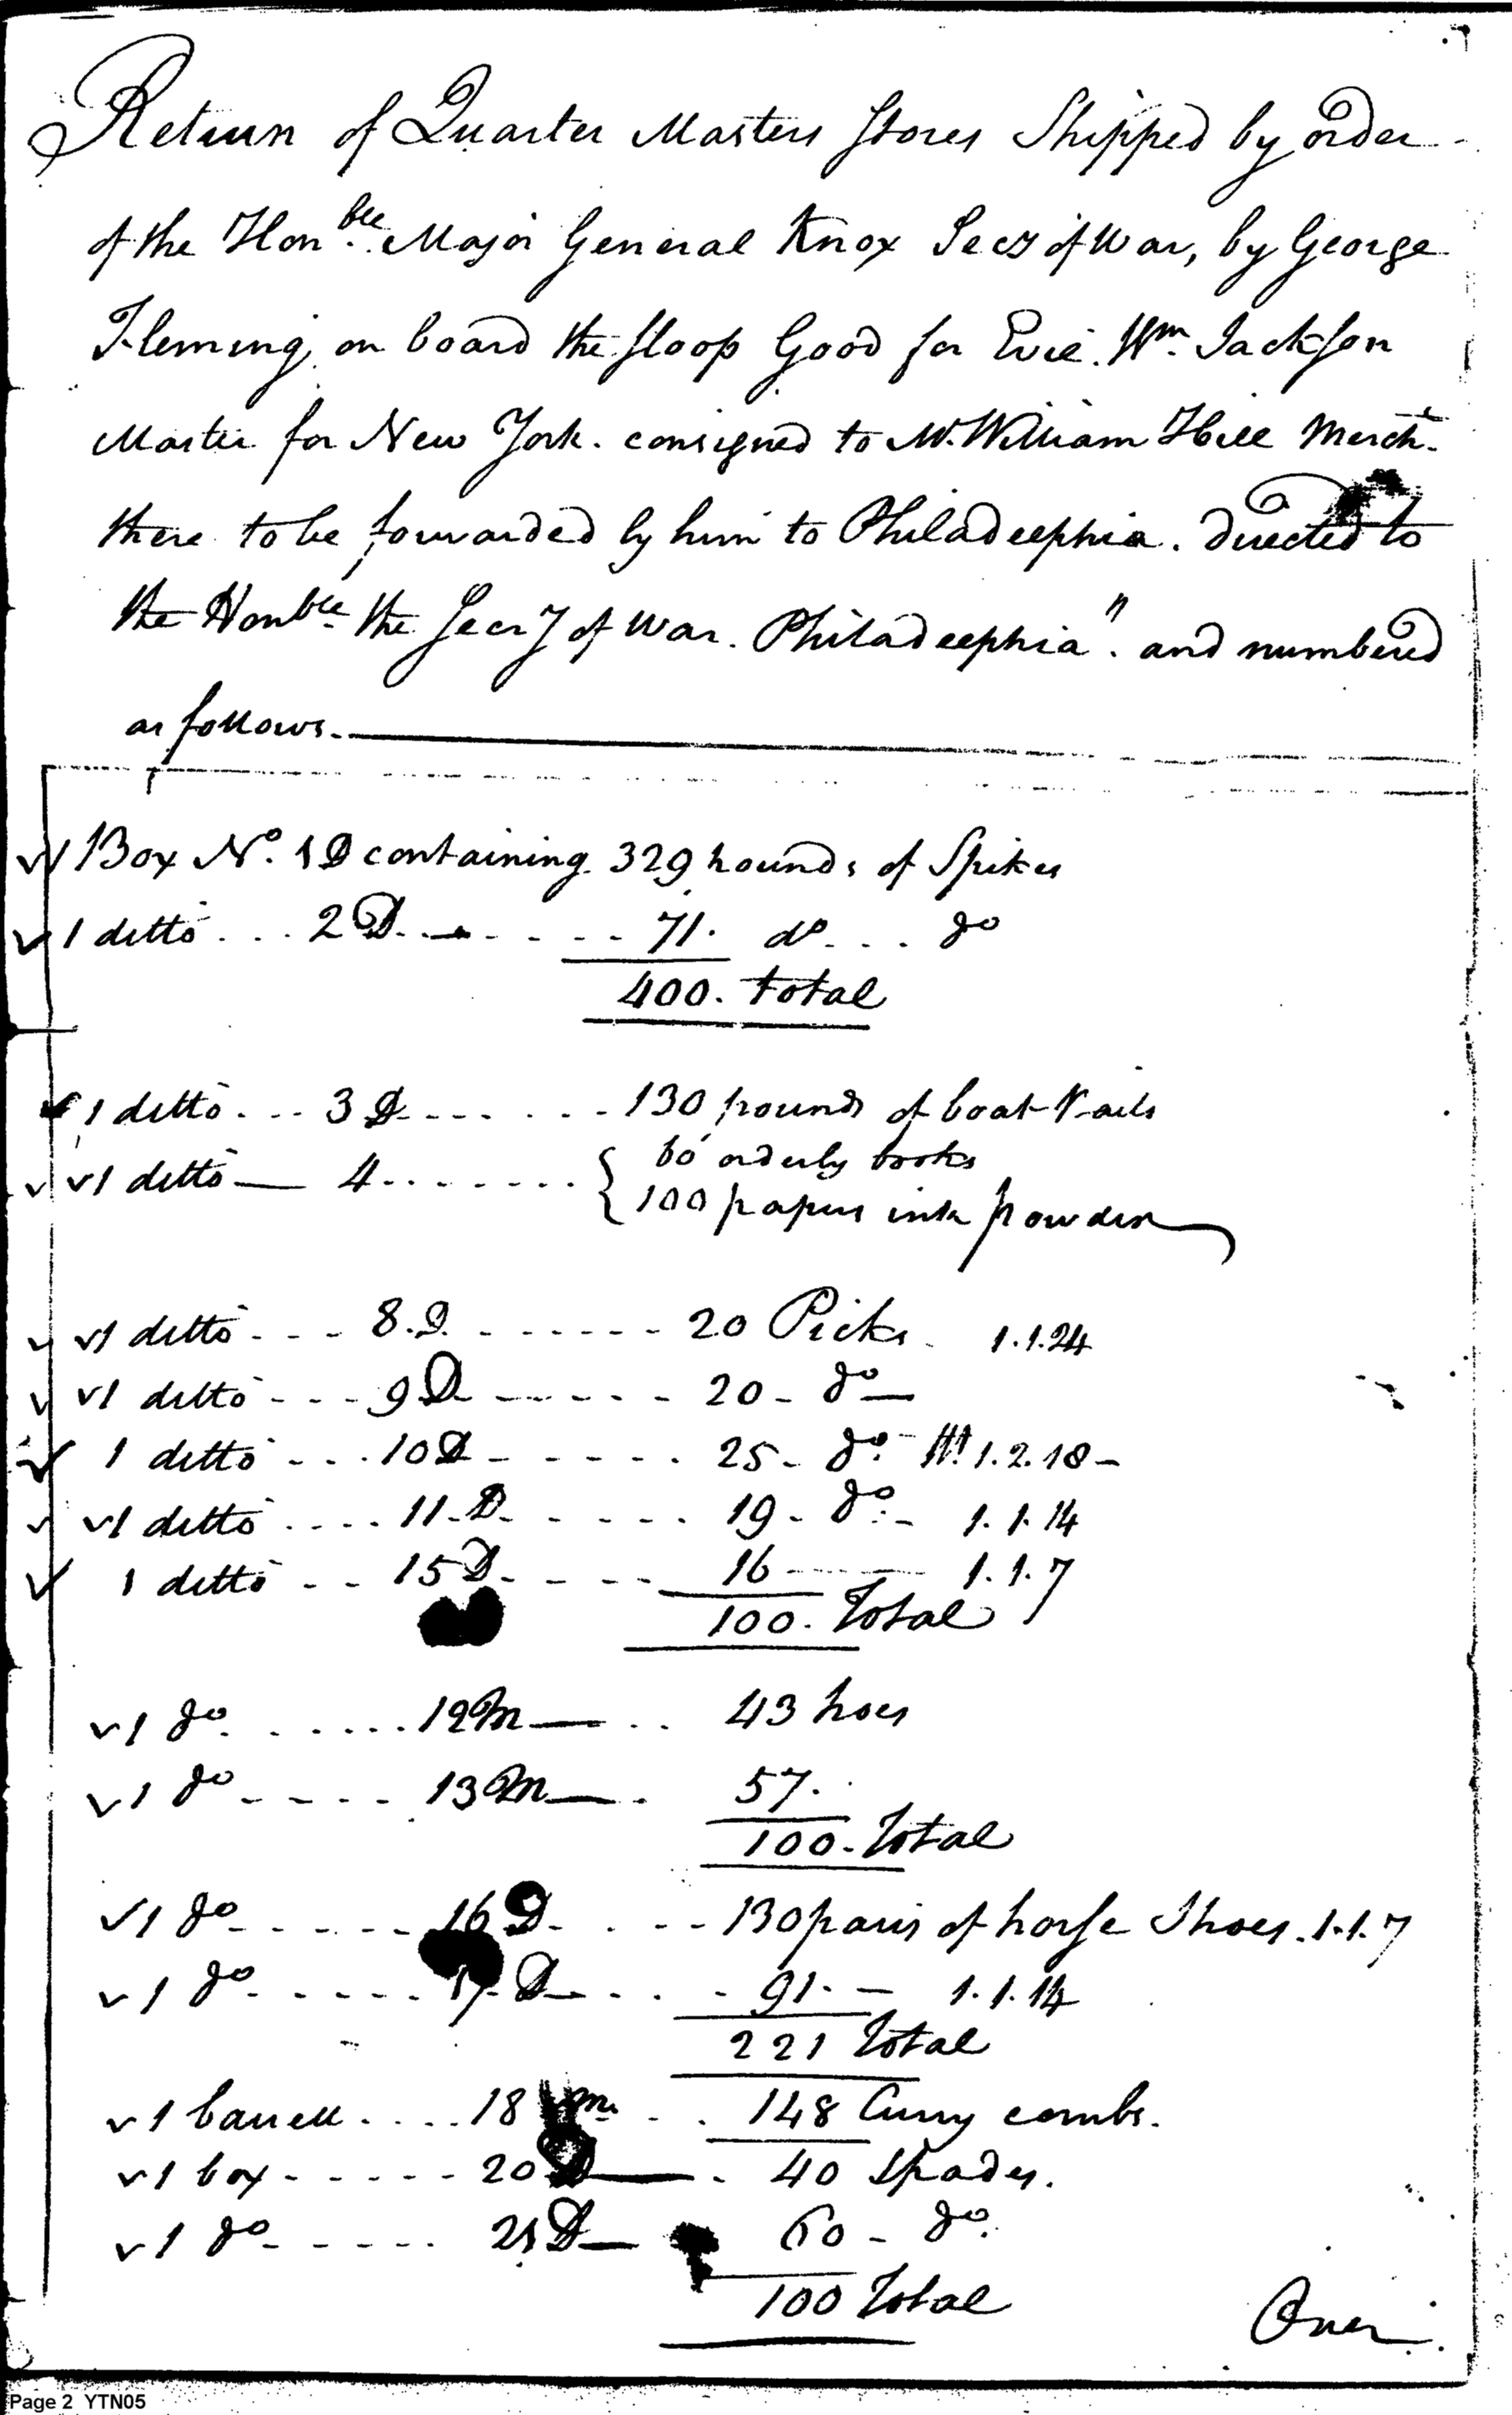 Return of Quarter Masters Stores Shipped by order
of the Honble. Major General Knox Secy of War, by George
Fleming, on board the Sloop Good for Evil. Wm. Jackson
Master for New York. consigned to Mr. William Hill Mercht.
there to be forwarded by him to Philadelphia. directed to
the Honble. the Secry of War. Philadelphia". and numbered
as follows.
1 Box No. 1 D containing 329 pounds of Spikes
1 ditto ... 2 D ... 71. do ... do
400. total
1 ditto ... 3 D ... 130 pounds of boat Nails
1 ditto 4 ... { 60 orderly books
100 papers ink powder
1 ditto ... 8. D ... 20 Picks. 1.1.24
1 ditto ... 9 D ... 20 - do
1 ditto ... 10 D ... 25 - do. 1.2.18
1 ditto ... 11 D ... 19 - do. 1.1.14
1 ditto ... 15 D ... 16 ... 1.1.7
100. Total
1 do ... 12 M ... 43 hoes
1 do ... 13 M . 57.
100. Total
1 do ... 16 D ... 130 pairs of horse Shoes. 1.1.7
1 do ... 17 D ... 91. - 1.1.14
221 Total
1 barrell ... 18 m ... 148 Curry combs.
1 box ... 20 D . 40 Spades.
1 do ... 21 D 60 - do.
100 Total
Over
Page 2 YTN05